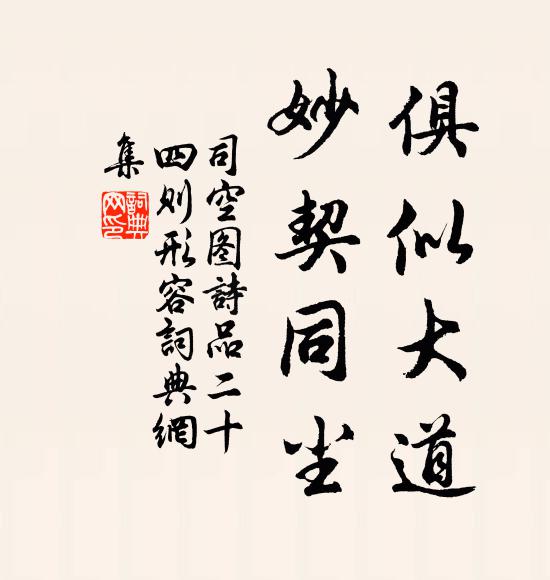 俱似大道
妙契同尘
司空图詩品二十
四则形容詞典網
集
詞典
网印